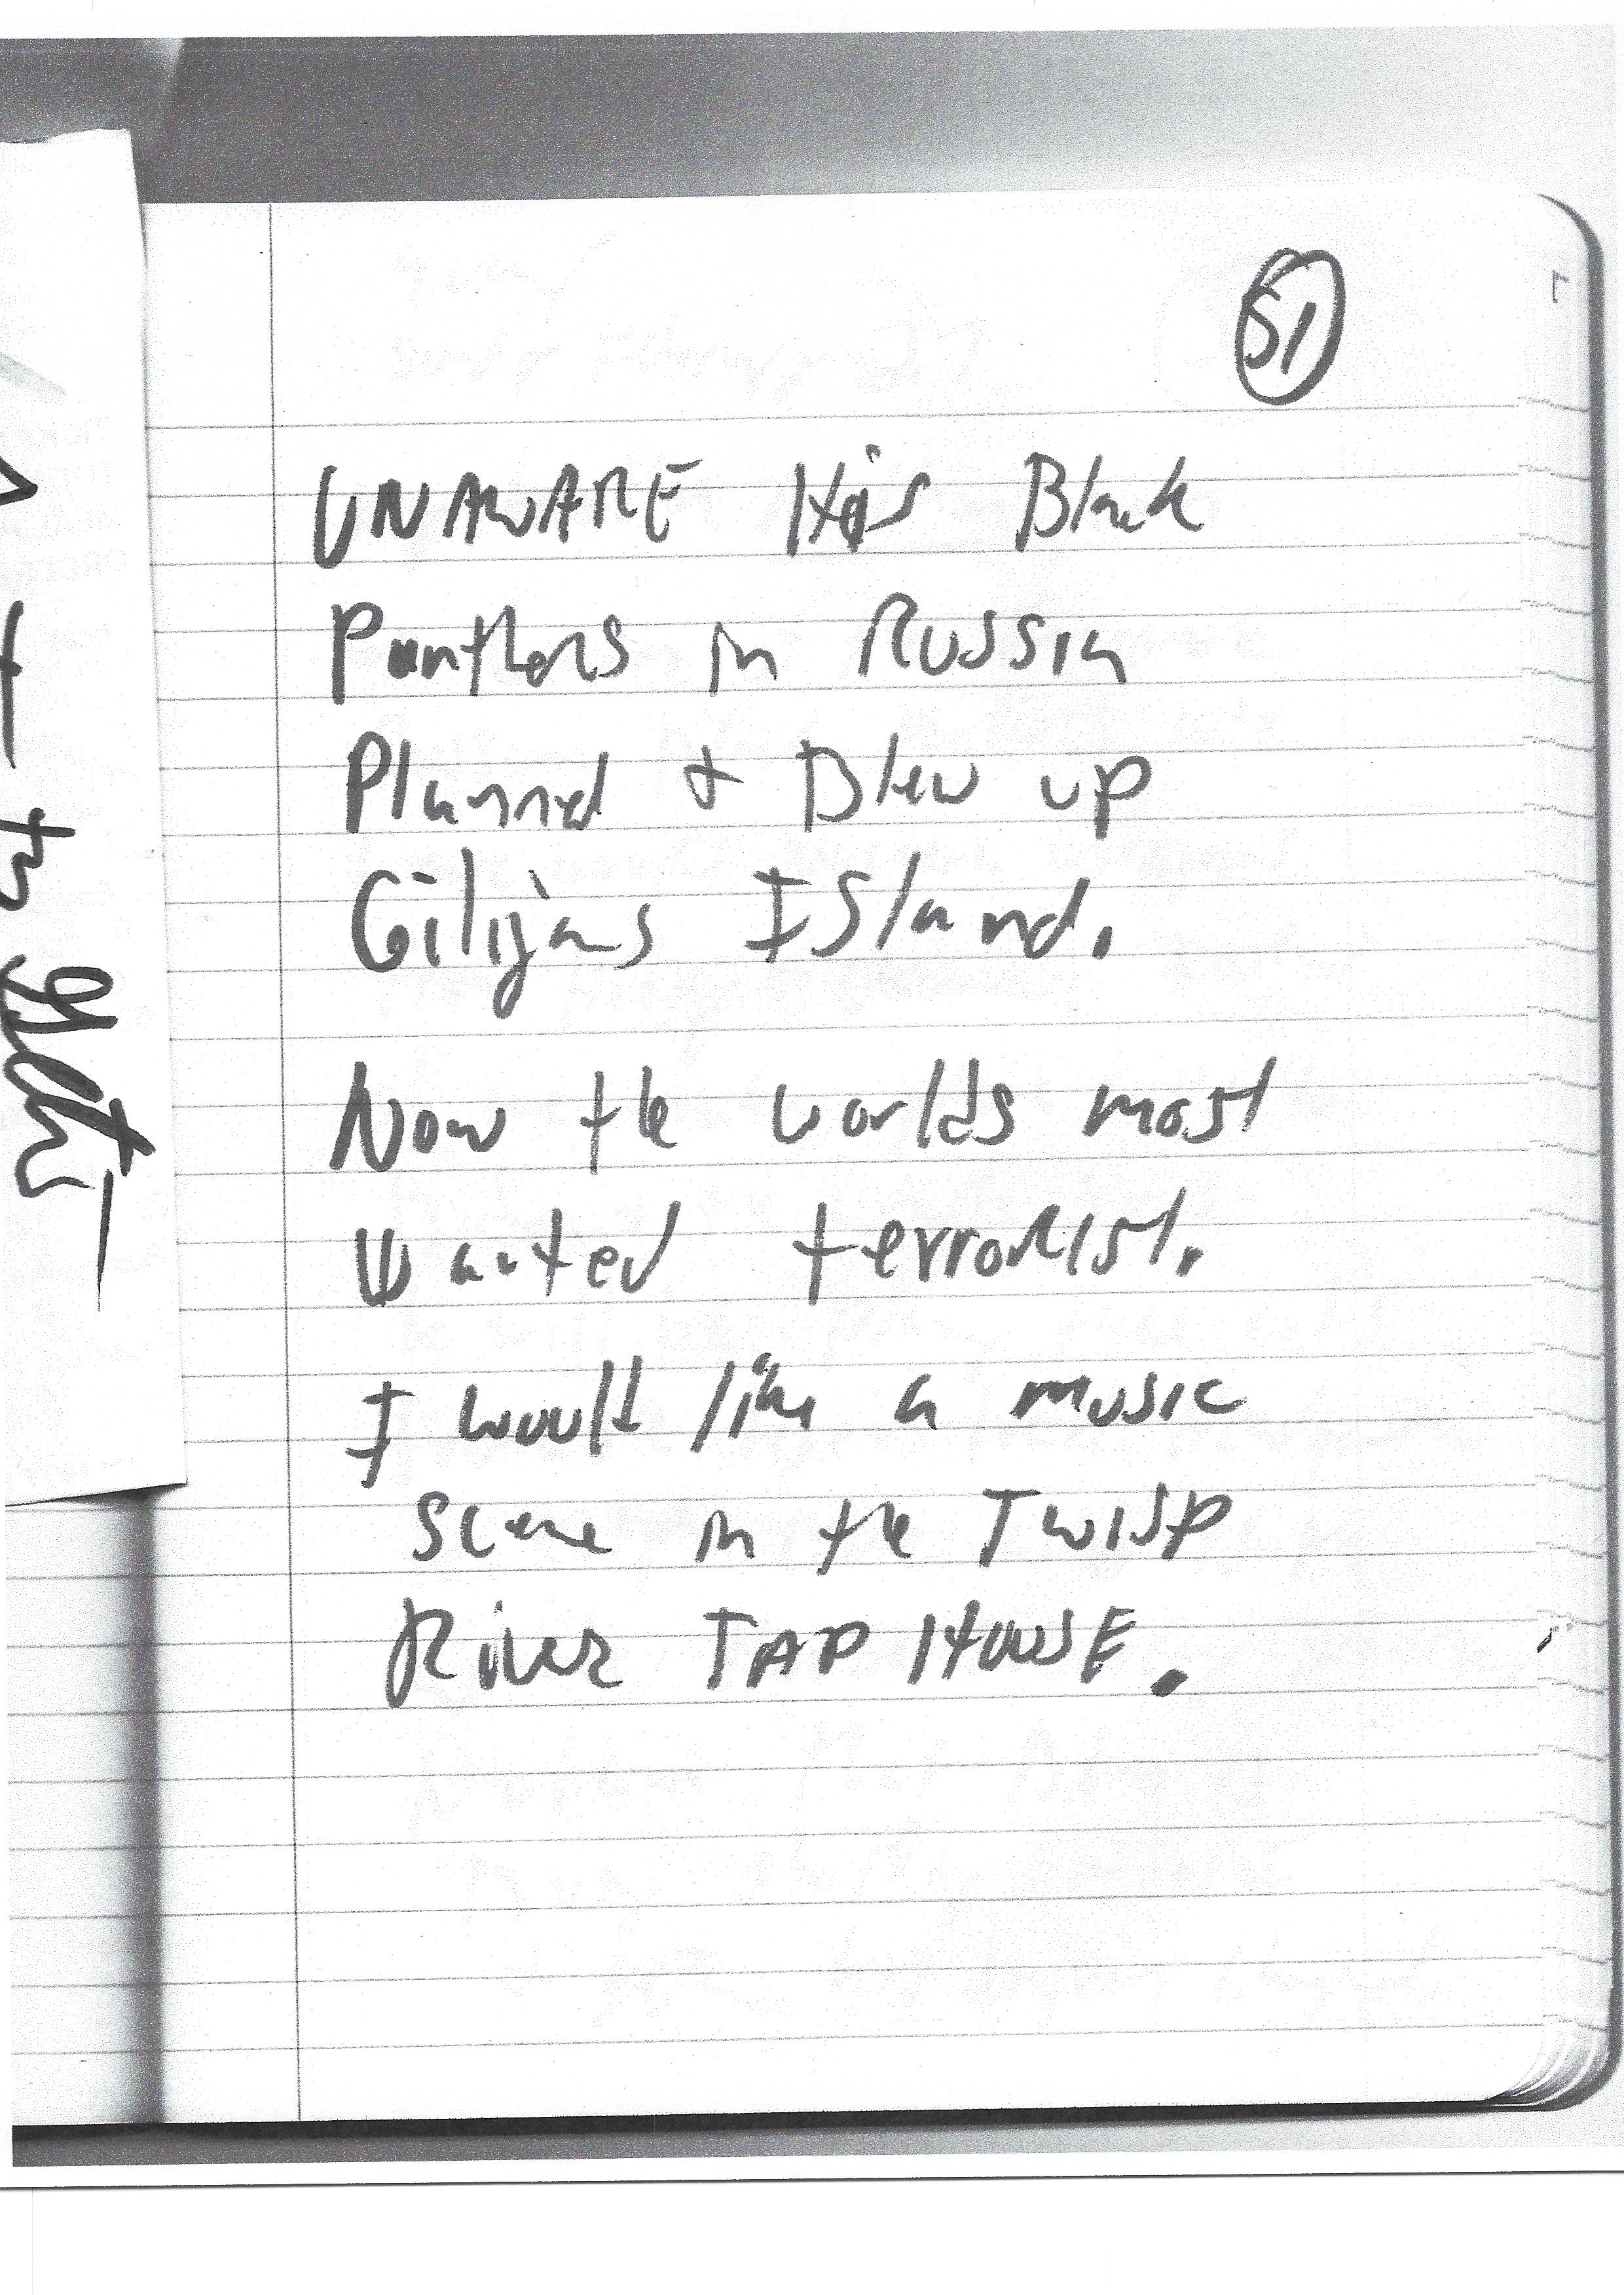 51
UNAWARE His Black
Panthers in Russia
Planned + Blew up
Giligans Island.
Now the worlds most
Wanted terrorist.
I would like a music
Scene in the Twisp
River TAP HOUSE.